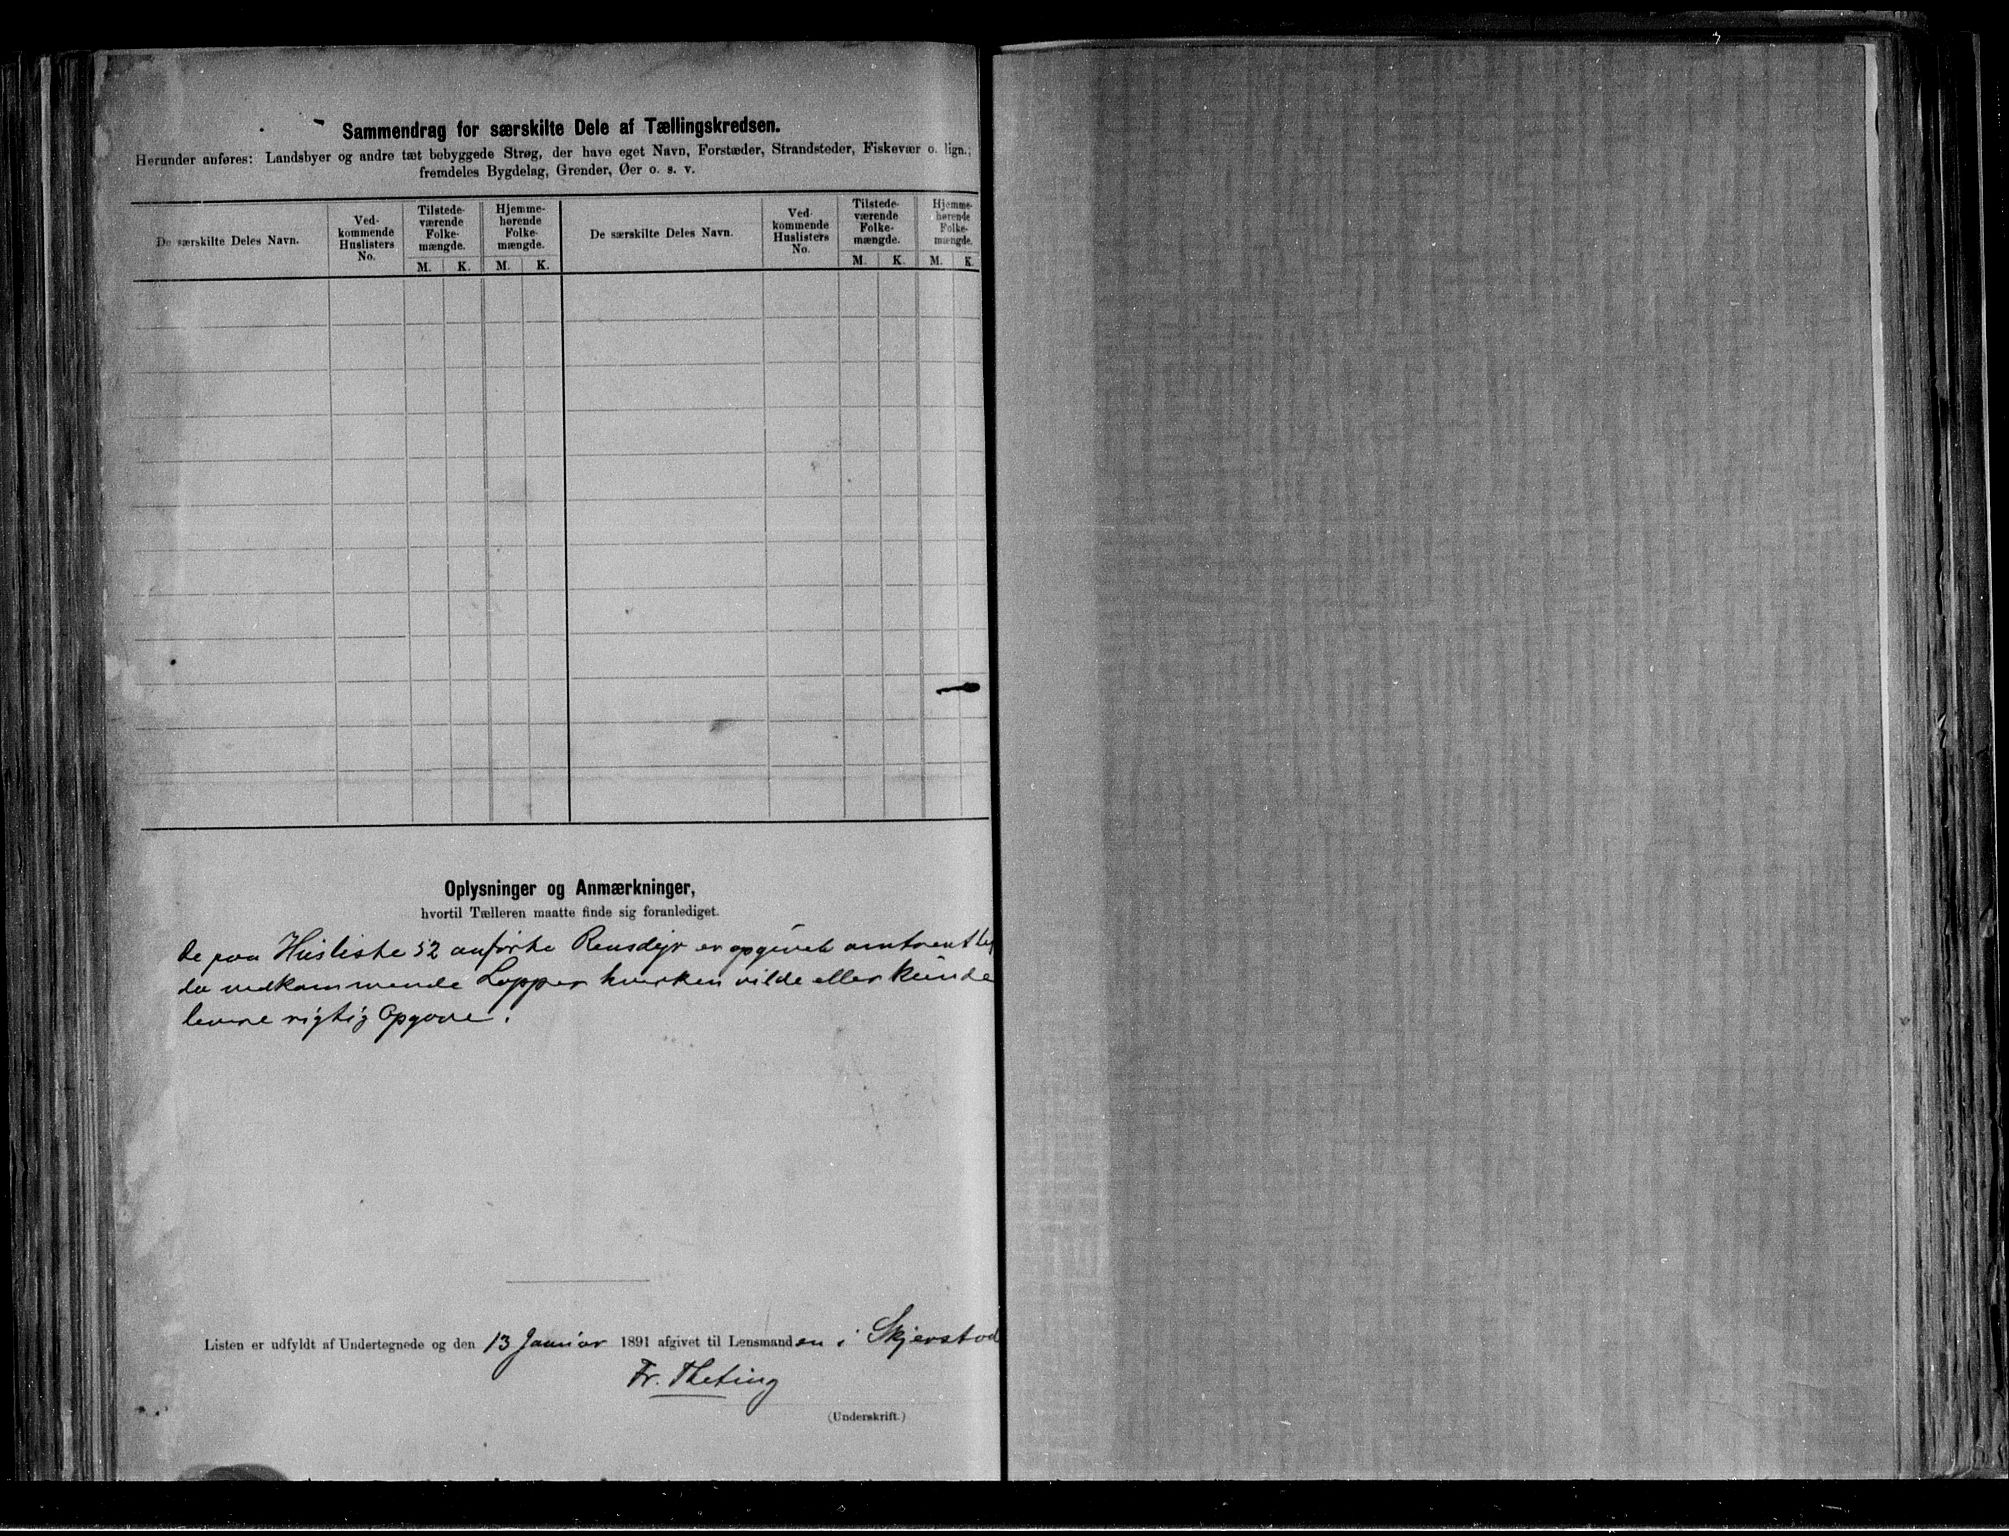 Sammendrag for særskilte Dele af Tællingskredsen.
Herunder anføres: Landsbyer og andre tæt bebyggede Strøg, der have eget Navn, Forstæder, Strandsteder, Fiskevær o. lign.;
fremdeles Bygdelag, Grender, Øer o. s. v.
De særskilte Deles Navn. Ved-kommende Huslisters No. Tilstede-værende Folke-mængde. Hjemme-hørende Folke-mængde. De særskilte Deles Navn. Ved-kommende Huslisters No. Tilstede-værende Folke-mængde. Hjemme-hørende Folke-mængde.
M. K. M. K. M. K. M. K.
Oplysninger og Anmærkninger,
hvortil Tælleren maatte finde sig foranlediget.
De paa Husliste 52 anførte Rensdyr er opgivet omtrentlig
da vedkommende Lapper hverken vilde eller kunde
levere rigtig Opgave.
Listen er udfyldt af Undertegnede og den 13 Januar 1891 afgivet til Lensmanden i Skjerstad
Fr. Theting
(Underskrift.)